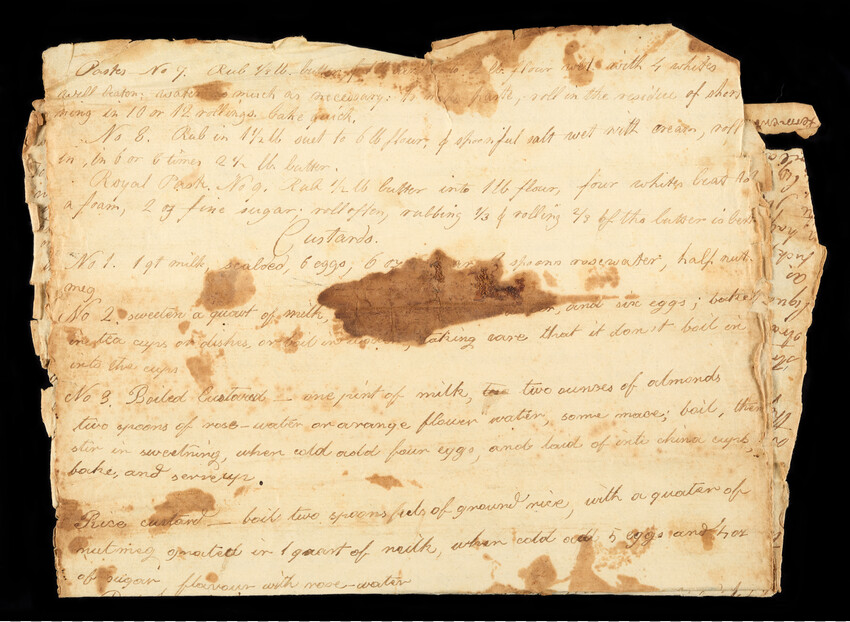 Paste No 7. Rub ½ lb. butter lb. flour wet with 4 whites
well beaten; water so much as necessary: to paste, roll in the residue of shor
ning in 10 or 12 rollings, bake quick.
No 8. Rub in 1½ lb suet to 6 lb flour, & spoonful salt wet with cream, roll
in, in 6 or 8 times 2½ lb. butter.
Royal Paste No 9. Rub ½ lb butter into 1 lb flour, four whites beat to
a foam, 2 oz fine sugar: roll often, rubbing 1/3 & rolling 2/3 of the butter is best
Custards.
No 1. 1 qt milk, scalded, 6 eggs; 6 oz spoons rosewater, half nut-
meg
No 2. sweeten a quart of milk, and six eggs; bake
in tea cups or dishes, or boil in taking care that it don't boil in
into the cups.
No 3. Boiled Custard — one pint of milk, two ounces of almonds
two spoons of rose-water or arange flower water, some mace; boil, then
stir in sweetning, when cold add four eggs, and laid of into china cups,
bake, and serve up.
Rise custard — boil two spoons fuls of ground rice, with a quater of
nutmeg grated in 1 quart of milk, when cold add 5 eggs and 4 oz
of sugar, flavour with rose-water